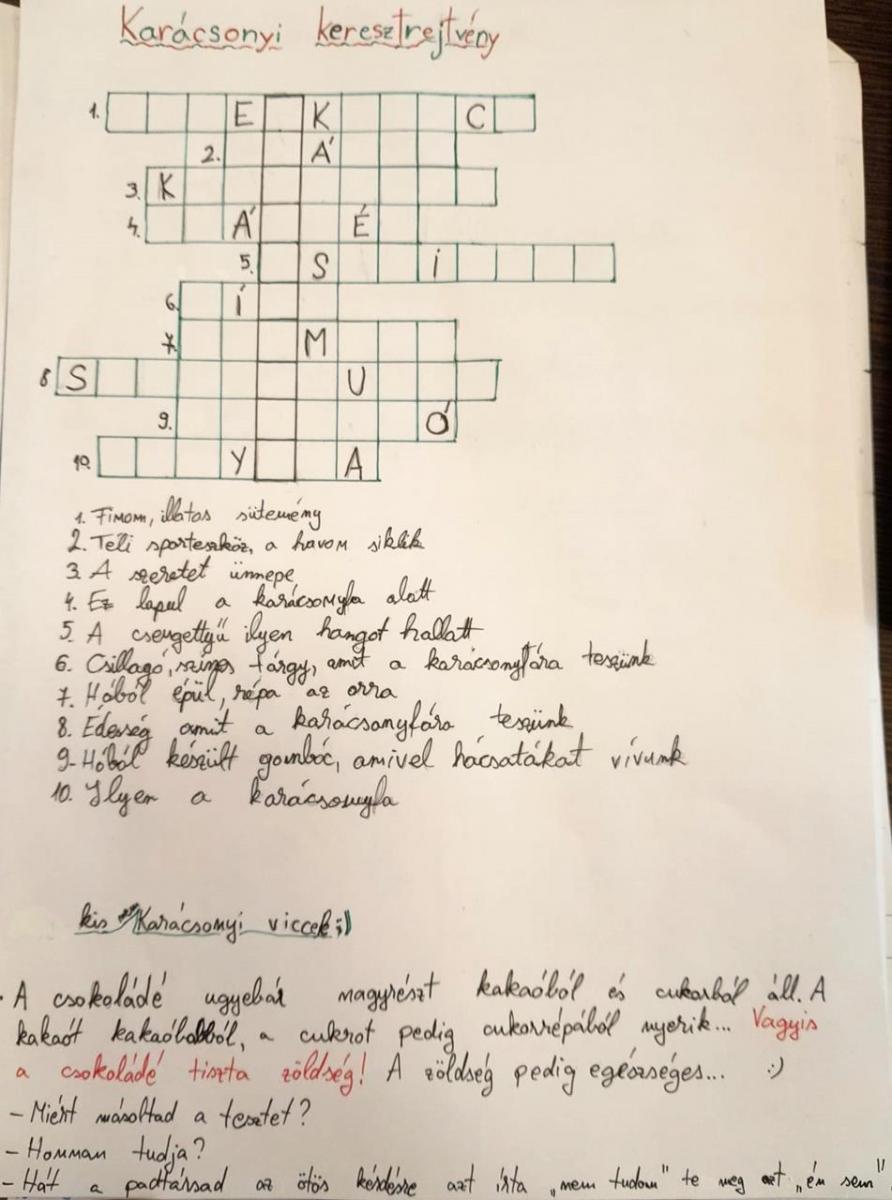 Karácsonyi keresztrejtvény
1. E K C
2. Á
3. K
4. Á É
5. S i
6. Í
7. M
8 S U
9. Ó
10. Y A
1. Finom, illatos sütemény
2. Téli sporteszköz, a havon siklik
3. A szeretet ünnepe
4. Ez lapul a karácsonyfa alatt
5. A csengettyű ilyen hangot hallatt
6. Csillagó, színes tárgy, amit a karácsonyfára teszünk
7. Hóból épül, répa az orra
8. Édesség amit a karácsonyfára teszünk
9. Hóból készült gombóc, amivel hócsatákat vívunk
10. Ilyen a karácsonyfa
kis Karácsonyi viccek ;)
. A csokoládé ugyebár nagyrészt kakaóból és cukorból áll. A
kakaót kakaóbabból, a cukrot pedig cukorrépából nyerik... Vagyis
a csokoládé tiszta zöldség! A zöldség pedig egészséges... :)
- Miért másoltad a tesztet?
- Honnan tudja?
- Hát a padtássad az ötös kérdésre azt írta „nem tudom" te meg azt „én sem"